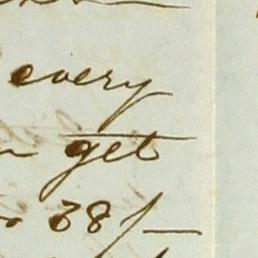 every
get
38/-